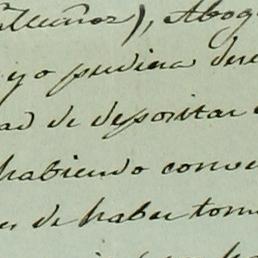 Muñoz), Abog
yo pudiera
ad de depositar
habiendo conve
es de haber tom